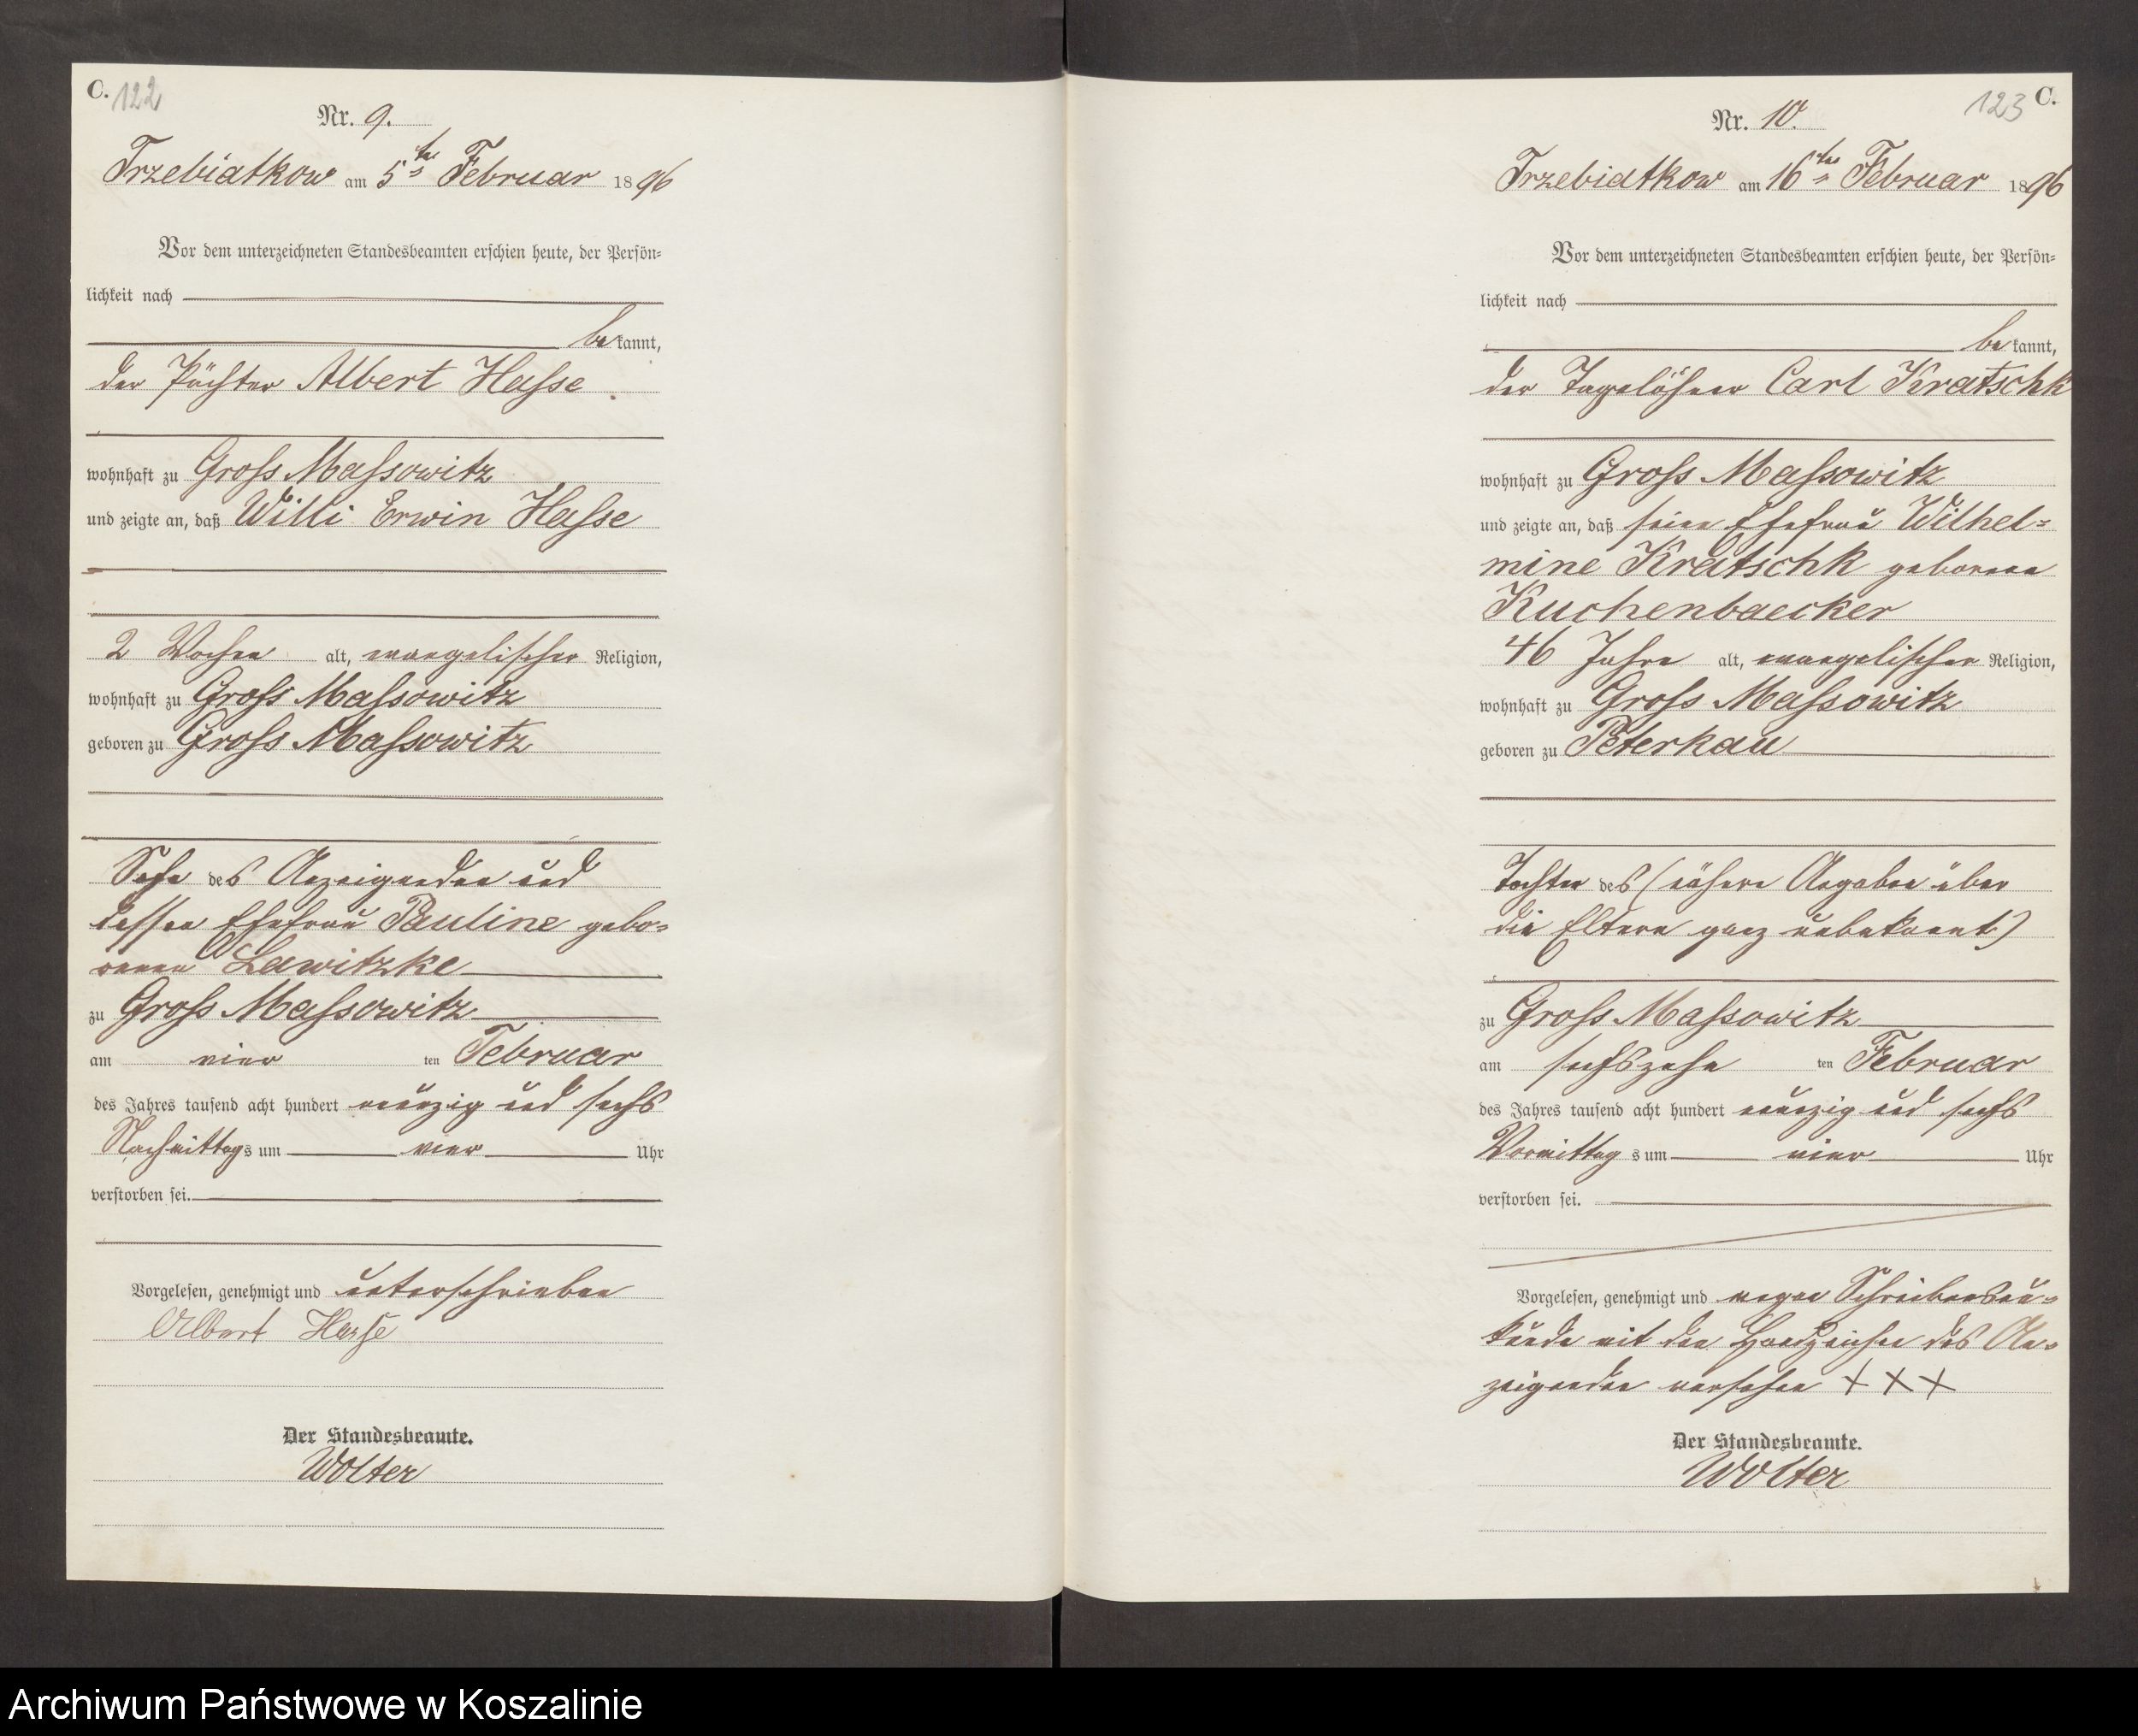 C. 122
Nr. 9.
Trzebiatkow am 5ten Februar 1896
Vor dem unterzeichneten Standesbeamten erschien heute, der Persön-
lichkeit nach
bekannt,
der Pächter Albert Hasse
wohnhaft zu Gross Massowitz
und zeigte an, daß Willi Erwin Hasse
2 Wochen alt, evangelischer Religion,
wohnhaft zu Gross Massowitz
geboren zu Gross Massowitz
Sohn des Anzeigenden und
dessen Ehefrau Pauline gebo-
renen Lawitzke
zu Gross Massowitz
am vier ten Februar
des Jahres tausend acht hundert neunzig und sechs
Nachmittags um vier Uhr
verstorben sei.
Vorgelesen, genehmigt und unterschrieben
Albert Hasse
Der Standesbeamte.
Wolter
123 C.
Nr. 10.
Trzebiatkow am 16ten Februar 1896
Vor dem unterzeichneten Standesbeamten erschien heute, der Persön-
lichkeit nach
bekannt,
der Tagelöhner Carl Kratschk
wohnhaft zu Gross Massowitz
und zeigte an, daß seine Ehefrau Wilhel-
mine Kratschk geborene
Kuchenbaecker
46 Jahre alt, evangelischer Religion,
wohnhaft zu Gross Massowitz
geboren zu Peterkau
Tochter des (nähere Angaben über
die Eltern ganz unbekannt)
zu Gross Massowitz
am sechszehn ten Februar
des Jahres tausend acht hundert neunzig und sechs
Vormittags um vier Uhr
verstorben sei.
Vorgelesen, genehmigt und wegen Schreibensun-
kunde mit den Handzeichen des An-
zeigenden versehen + + +
Der Standesbeamte.
Wolter
Archiwum Państwowe w Koszalinie